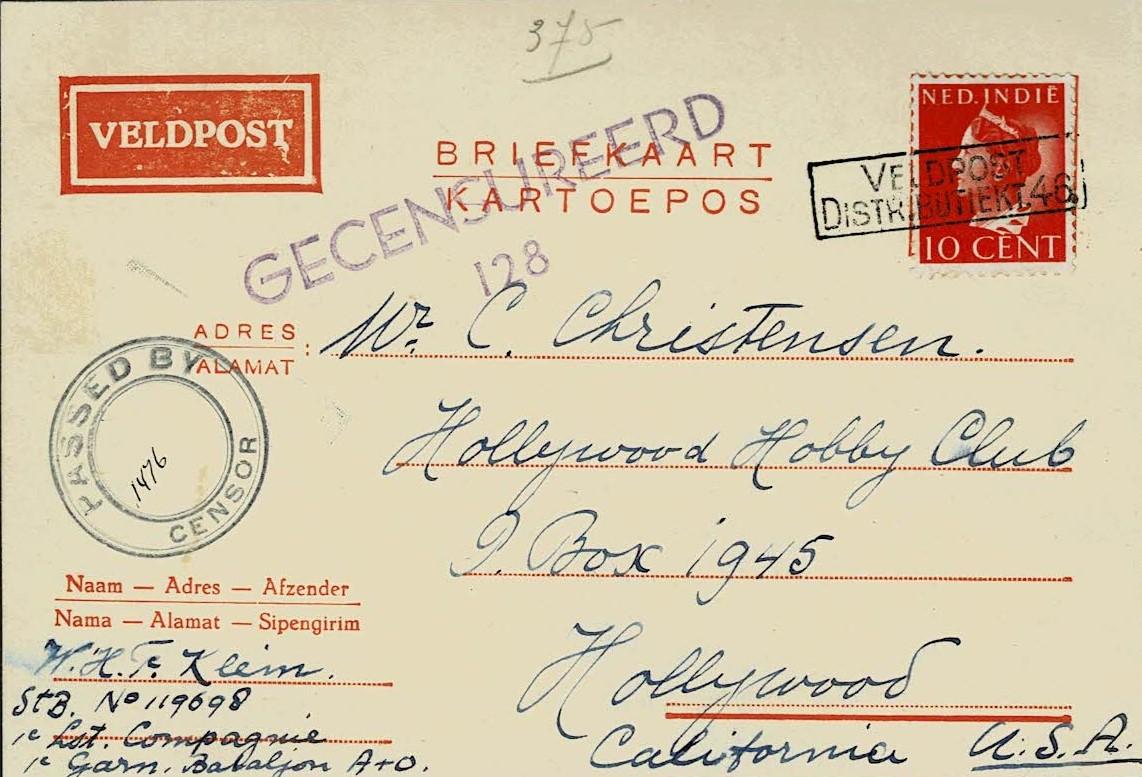 375
VELDPOST
NED. INDIË
BRIEFKAART
KARTOEPOS
GECENSUREERD
128
VELDPOST
DISTRIBUTIEKT.46.
10 CENT
ADRES
ALAMAT
:
Mr. C. Christensen.
PASSED BY
CENSOR
1476
Hollywood Hobby Club
P. Box 1945
Hollywood
California U.S.A.
Naam — Adres — Afzender
Nama — Alamat — Sipengirim
W.H.F. Klein.
StB. No 119698
1e Lst. Compagnie
1e Garn. Bataljon A+O.